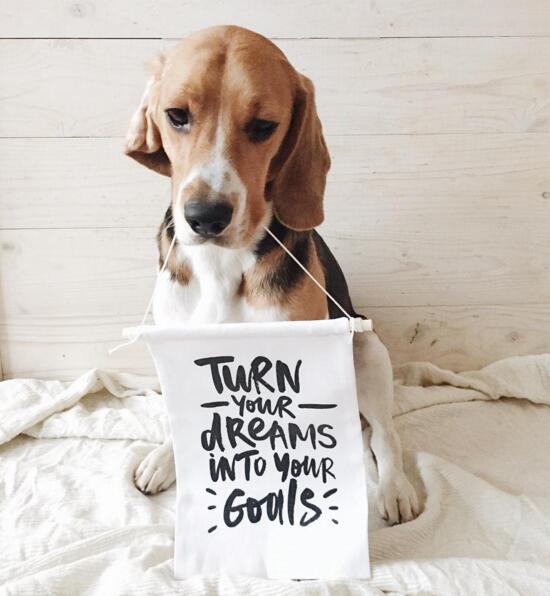 TURN
YOUR
dREAMS
INTO YOUR
GOalS